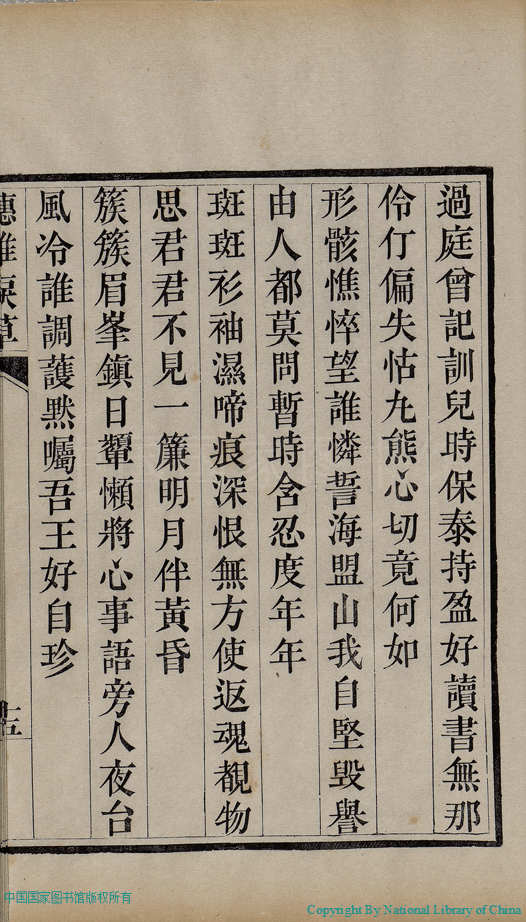 過庭曾記訓兒時保泰持盈好讀書無那
伶仃偏失怙丸熊心切竟何如
形骸憔悴望誰憐誓海盟山我自堅毀譽
由人都莫問暫時含忍度年年
斑斑衫袖濕啼痕深恨無方使返魂覩物
思君君不見一簾明月伴黃昏
簇簇眉峯鎮日顰懶將心事語旁人夜台
風冷誰調護黙囑吾王好自珍
中国国家图书馆版权所有
Copyright By National Library of China